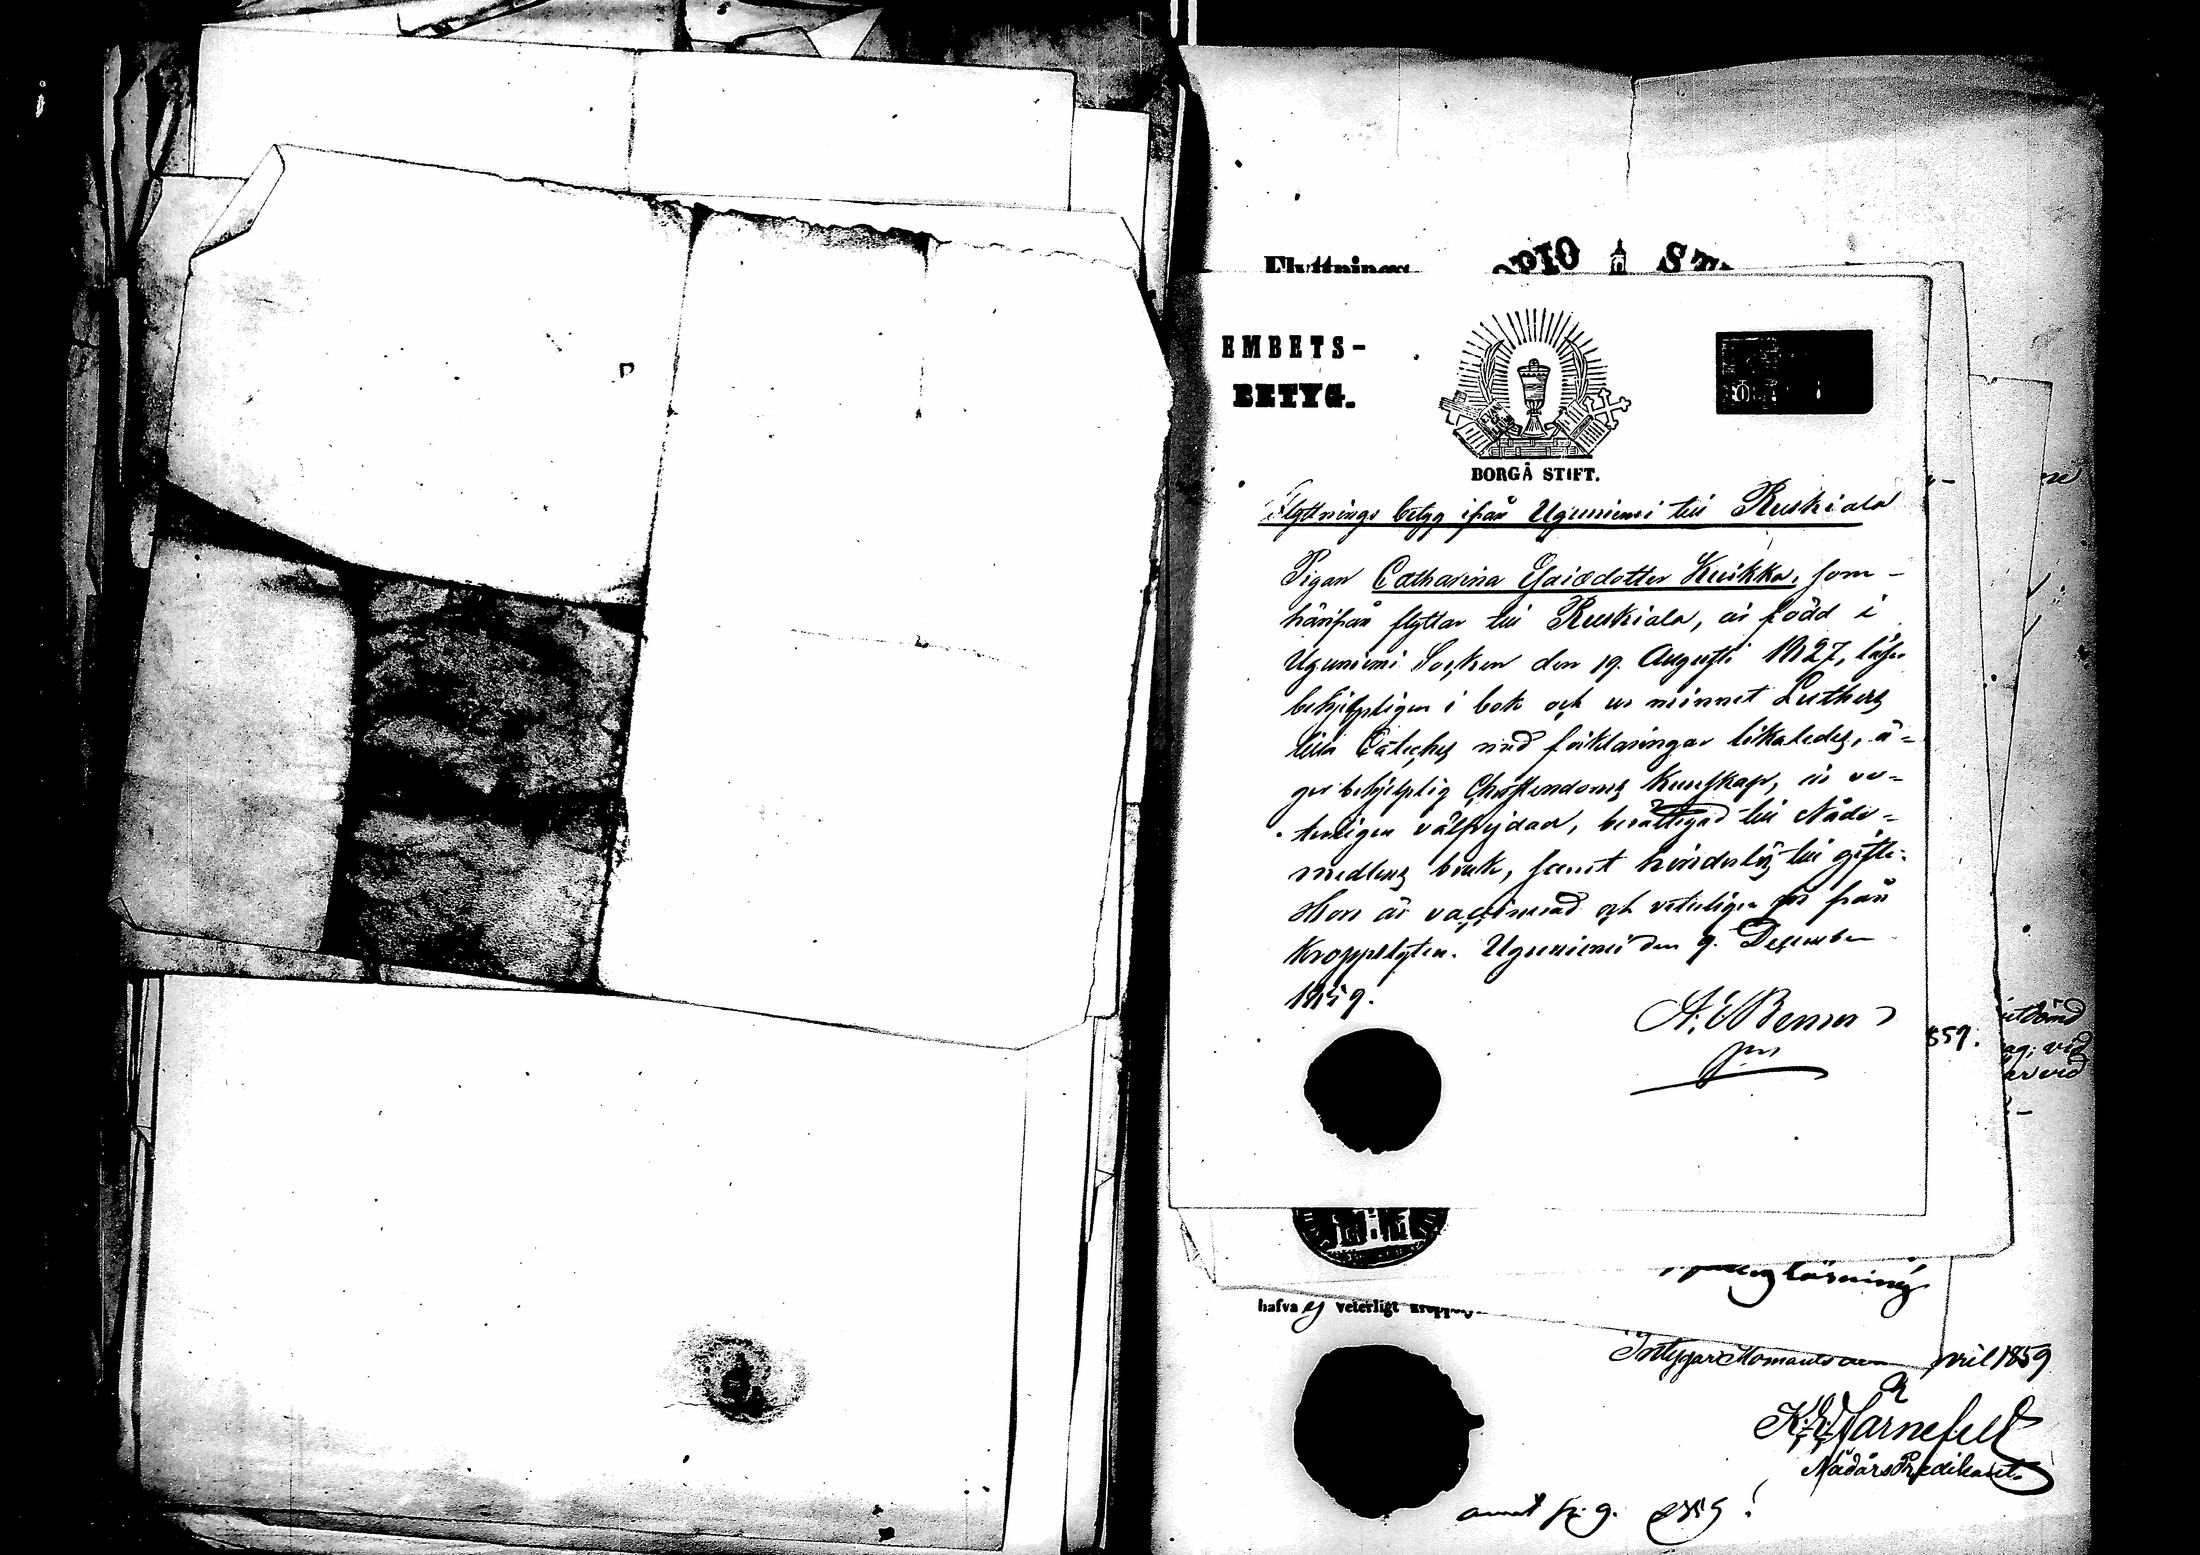 EMBETS-
BETYG.
BORGÅ STIFT.
Flyttnings betyg ifrån Uguniemi till Ruskiala
Pigan Catharina Esaiædotter Kuikka, som
härifrån flyttar till Ruskiala, är född i
Uguniemi Socken den 19. Augusti 1827, läser
behjelpligen i bok och ur minnet Luthers
lilla Cateches med förklaringar likaledes, ä-
ger behjelplig Christendoms kunskap, är ve-
terligen välfrejdad, berättigad till Nåde-
medlens bruk, samt hinderlös till gifte.
Hon är vaccinerad och veterligen fri från
kroppslyten. Uguniemi den 9. December
1859.
859.
hafva ej veterligt
Intygar Ilomants den pril 1859
K. Järnefelt
NådårsPredikant